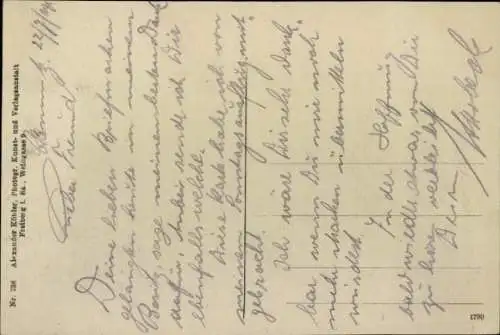 Chemnitz, 22/9/
Lieber Freund
Deine lieben Briefmarken
gelangten heute in meinen
Besitz, sage meinen besten Dank
dafür, anbei sende ich Dir
ebenfalls welche.
Diese Karte habe ich von
meinem Sonntagsausflug mit
gebracht.
Ich wäre Dir sehr dank-
bar, wenn Du mir noch
mehr Marken übermitteln
würdest.
In der Hoffnung
bald wieder etwas von Dir
zu hören verbleibt
Dein
Nr. 736 Alexander Köhler, Photogr. Kunst- und Verlagsanstalt
Freiberg i. Sa., Weingasse 9.
1790